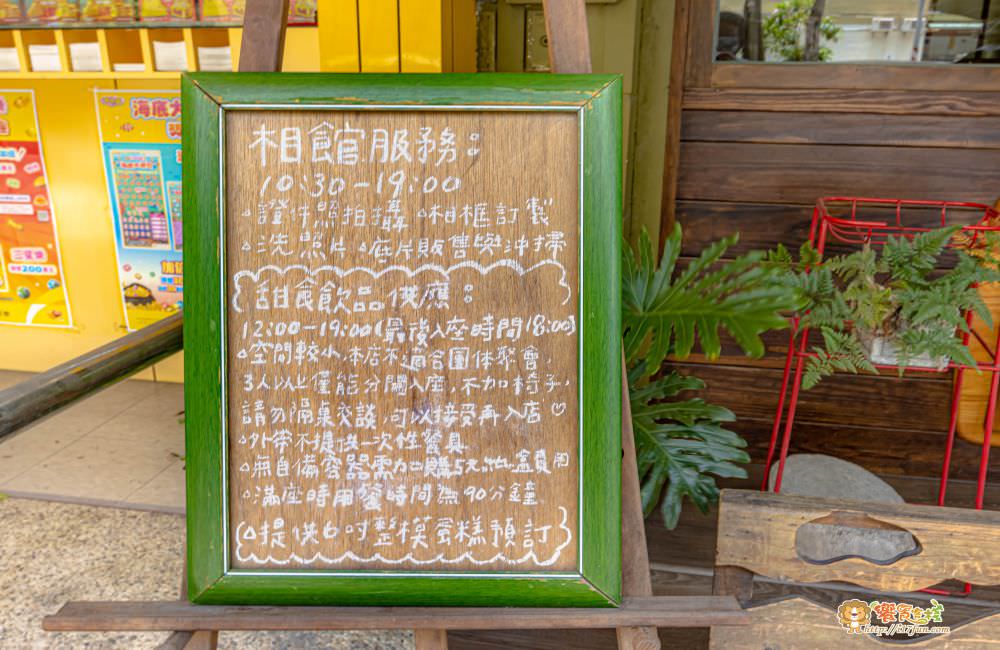 相館服務：
10:30-19:00
△證件照拍攝 △相框訂製
△洗照片 △底片販售與沖掃
甜食飲品供應：
12:00-19:00(最後入座時間18:00)
△空間較小,本店不適合團體聚會,
3人以上僅能分開入座,不加椅子,
請勿隔桌交談,可以接受再入店♡
△外帶不提供一次性餐具
△無自備容器需加購5元紙盒費用
△滿座時用餐時間為90分鐘
△提供6吋整模蛋糕預訂
海底大
三星獎
200萬
饗食生活
http://ha17fun.com